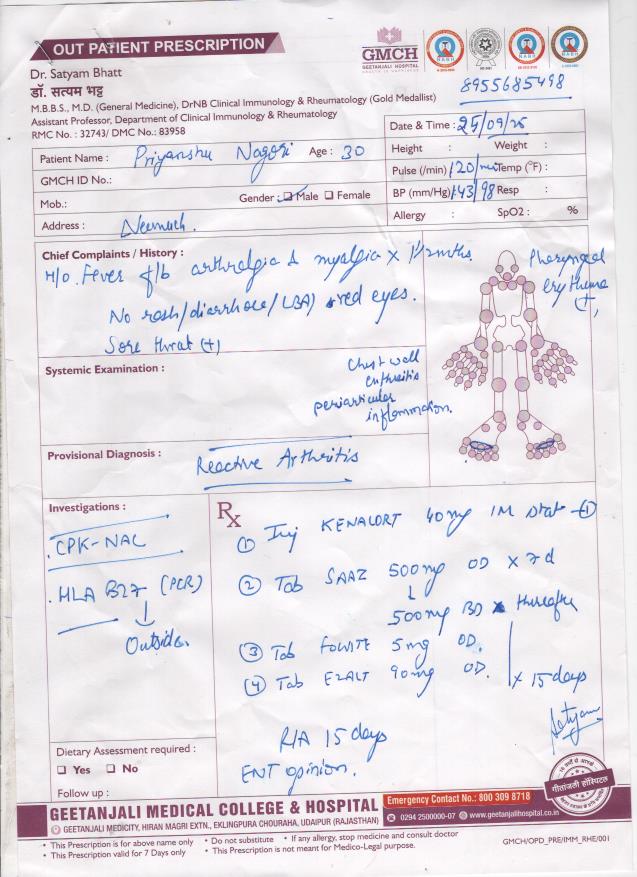 OUT PATIENT PRESCRIPTION
GMCH
GEETANJALI HOSPITAL
Dr. Satyam Bhatt
डॉ. सत्यम भट्ट
8955685498
M.B.B.S., M.D. (General Medicine), DrNB Clinical Immunology & Rheumatology (Gold Medallist)
Assistant Professor, Department of Clinical Immunology & Rheumatology
RMC No. : 32743/ DMC No.: 83958
Date & Time : 25/09/25
Patient Name : Priyanshu Nagori Age : 30
Height : Weight :
GMCH ID No.:
Pulse (/min) 120/min Temp (°F) :
Mob.: Gender : Male Female
BP (mm/Hg) 143/98 Resp :
Address : Neemuch.
Allergy : SpO2 : %
Chief Complaints / History :
H/O. Fever f/b arthralgia & myalgia x 1½ mths.
No rash/diarrhoea/LBA/ red eyes.
Sore throat (+)
Pharyngeal
erythema
(+)
Systemic Examination :
Chest wall
enthesitis
periarticular
inflammation.
Provisional Diagnosis :
Reactive Arthritis
Investigations :
. CPK-NAC
. HLA B27 (PCR)
↓
Outside.
Rx
① Inj KENALORT 40mg IM stat - ①
② Tab SAAZ 500mg OD x 7d
↓
500mg BD x thereafter
③ Tab FOLVITE 5mg OD.
④ Tab EZALT 90mg OD. x 15days
R/A 15 days
ENT opinion.
Satyam
Dietary Assessment required :
Yes No
Follow up :
गीतांजली हॉस्पिटल
GEETANJALI MEDICAL COLLEGE & HOSPITAL
Emergency Contact No.: 800 309 8718
GEETANJALI MEDICITY, HIRAN MAGRI EXTN., EKLINGPURA CHOURAHA, UDAIPUR (RAJASTHAN)
0294 2500000-07 www.geetanjalihospital.co.in
• This Prescription is for above name only • Do not substitute • If any allergy, stop medicine and consult doctor
• This Prescription valid for 7 Days only • This Prescription is not meant for Medico-Legal purpose.
GMCH/OPD_PRE/IMM_RHE/001